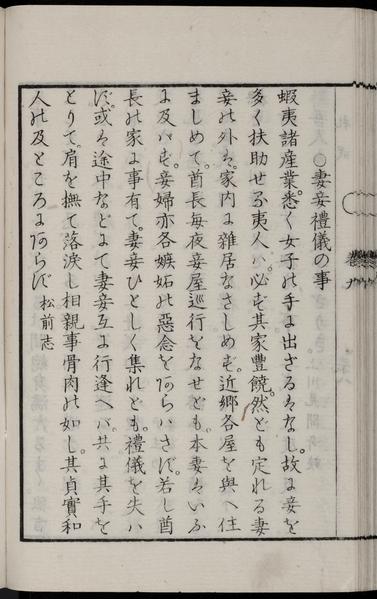 ○妻妾禮儀の事
蝦夷諸産業。悉く女子の手に出ざるはなし。故に妾を
多く扶助せる夷人ハ。必ず其家豐饒。然とも定れる妻
妾の外は。家内に雑居なさしめず。近郷各屋を與へ住
ましめて。酋長毎夜妾屋巡行をなせども。本妻はいふ
に及バず。妾婦亦各嫉妬の惡念をあらハさず。若し酋
長の家に事有て。妻妾ひとしく集れとも。禮儀を失ハ
ず。或は途中などにて妻妾互に行逢へバ。共に其手を
とりて。肩を撫て落淚し相親事骨肉の如し。其貞實和
人の及ところにあらず 松前志